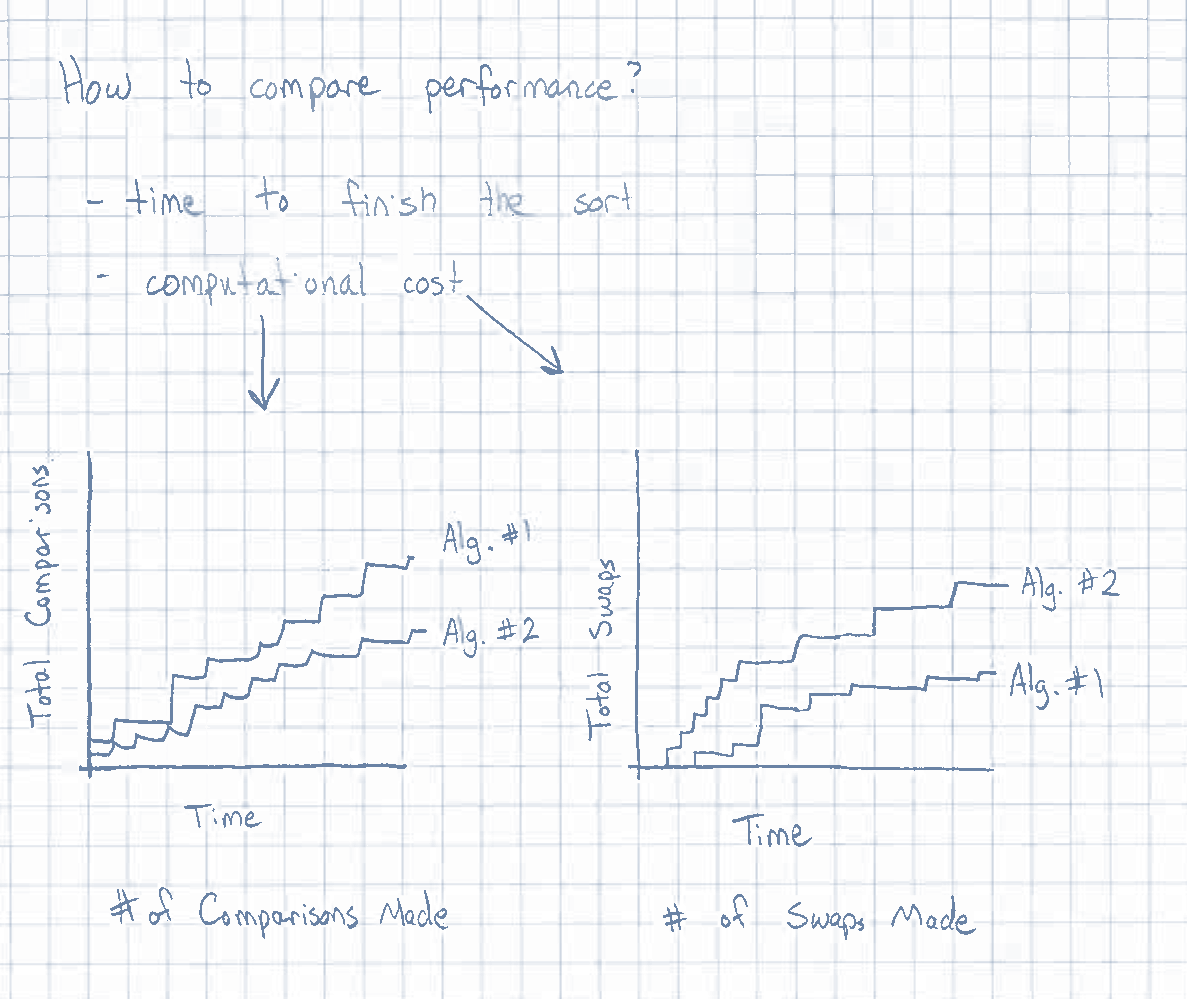 How to compare performance?
- time to finish the sort
- computational cost
Total Comparisons
Alg. #1
Alg. #2
Time
# of Comparisons Made
Total Swaps
Alg. #2
Alg. #1
Time
# of Swaps Made